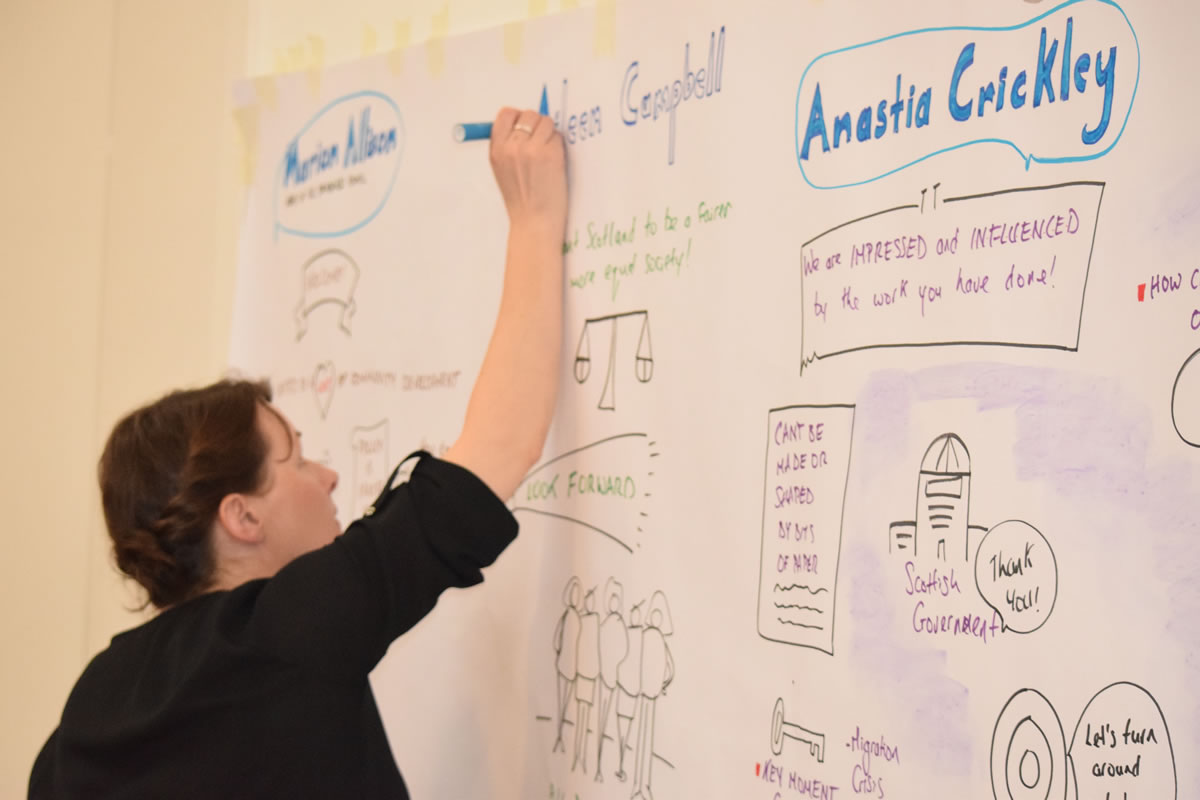 Marion Allison
Aileen Campbell
Scotland to be a fairer
more equal society!
LOOK FORWARD
Anastia Crickley
We are IMPRESSED and INFLUENCED
by the work you have done!
CANT BE
MADE OR
SHAPED
BY BITS
OF PAPER
Scottish
Government
Thank
You!
KEY MOMENT
-Migration
Crisis
Let's turn
around
HOW
OF COMMUNITY DEVELOPMENT